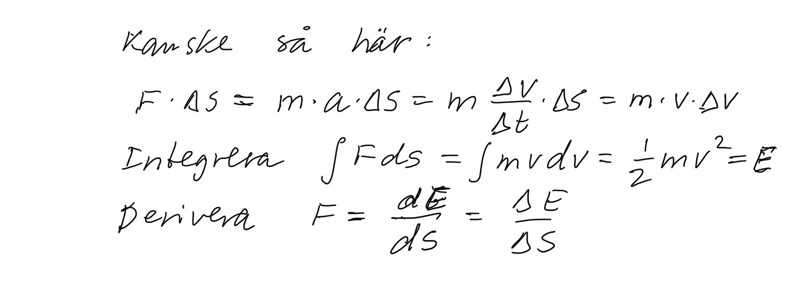 Kanske så här:
F·ΔS = m·a·ΔS = m ΔV/Δt·ΔS = m·v·Δv
Integrera ∫Fds = ∫mvdv = 1/2 mv² = E
Derivera F = dE/dS = ΔE/ΔS